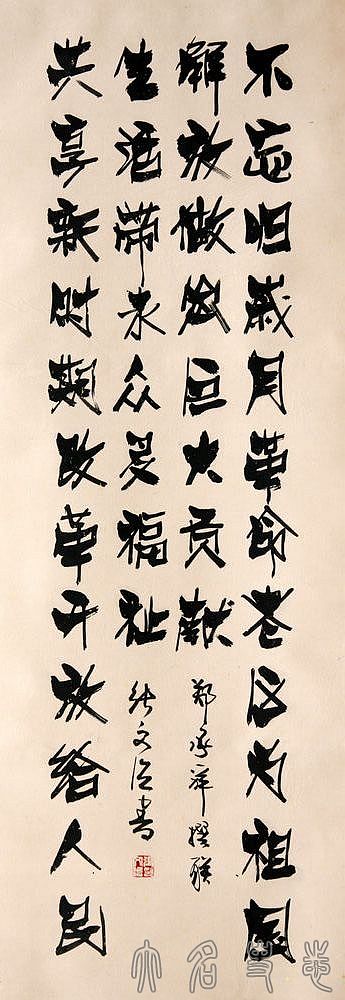 不忘旧歲月革命老区为祖国
解放做出巨大贡献
郑承祥撰联
共享新时期改革开放给人民
生活带来众多福祉
张文书
大名史志